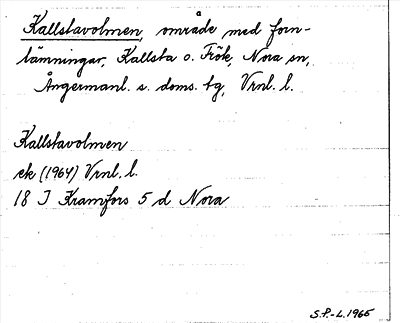 Kallstavolmen, område med forn-
lämningar, Kallsta o. Frök, Nora sn,
Ångermanl. s. doms. tg, Vrnl. l.
Kallstavolmen
ek (1964) Vrnl. l.
18 J Kramfors 5 d Nora
S.P.-L. 1965